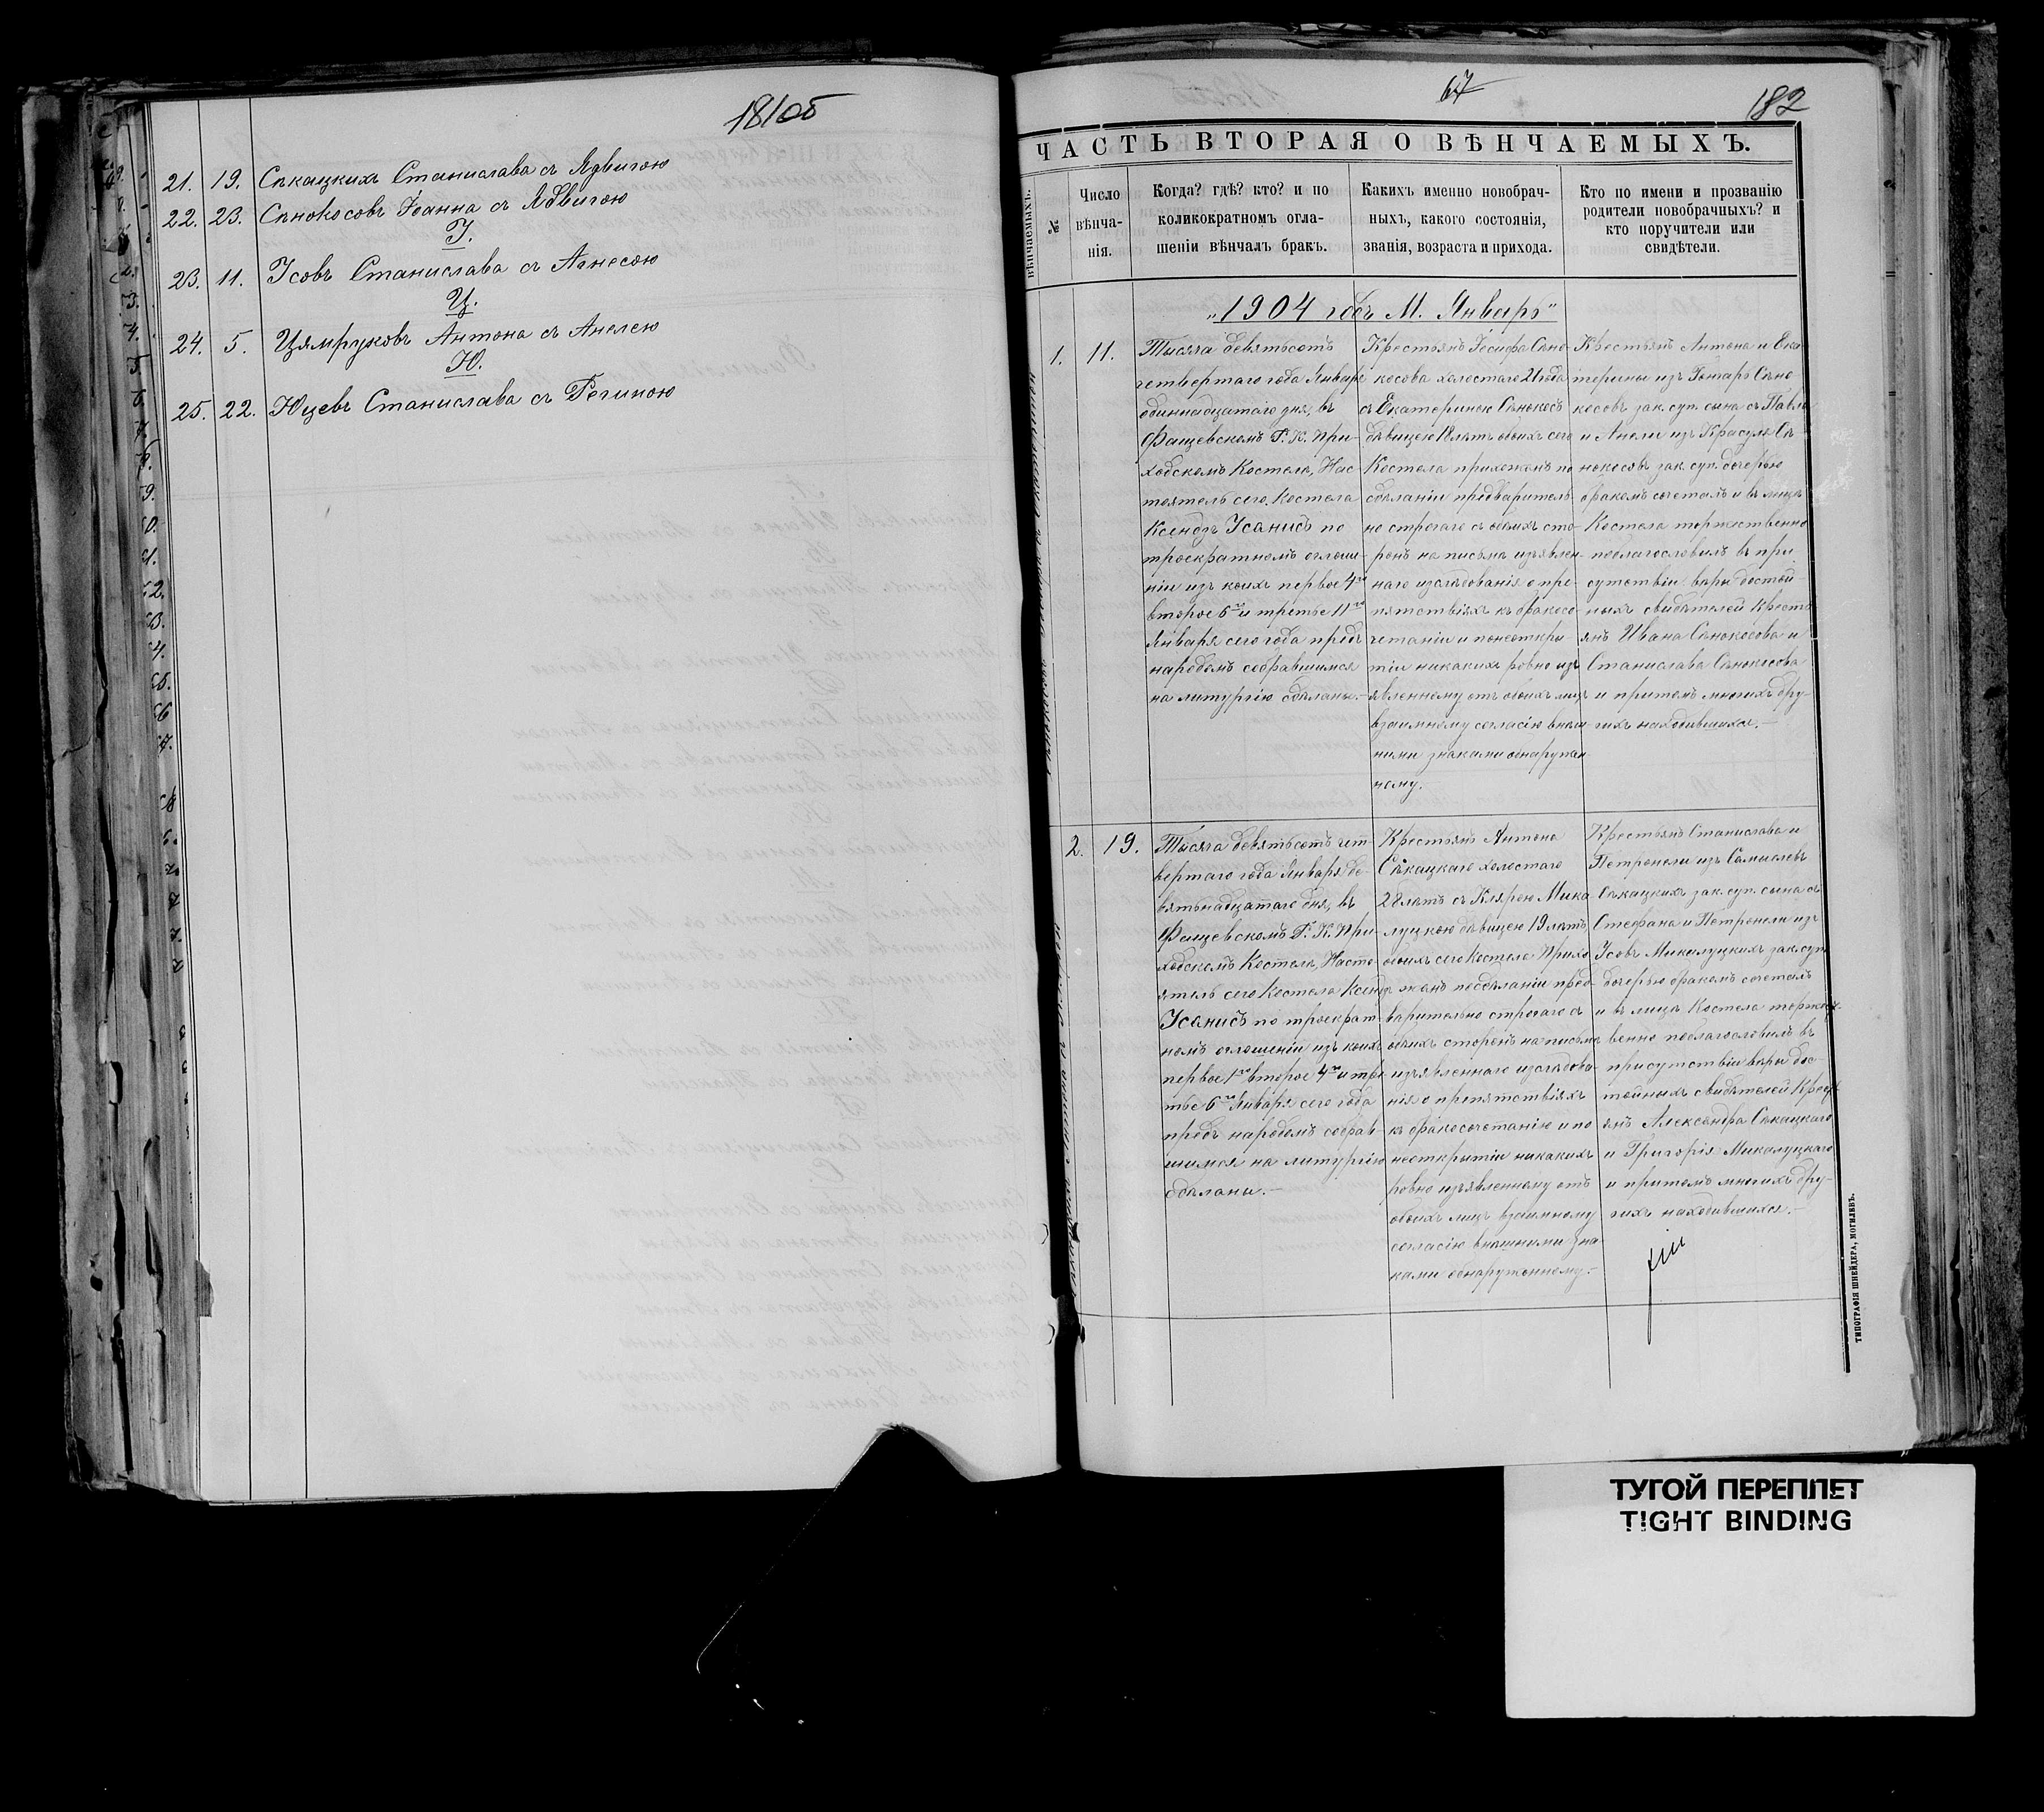 181об
21. 19. Сѣкацкихъ Станислава съ Ядвигою
22. 23. Сѣнокосовъ Іоанна съ Ядвигою
У.
23. 11. Усовъ Станислава съ Агнесою
Ц.
24. 5. Цямруковъ Антона съ Анелею
Ю.
25. 22. Юцевъ Станислава съ Региною
67
182
ЧАСТЬ ВТОРАЯ О ВѢНЧАЕМЫХЪ.
№ вѣнчаемыхъ.
Число
вѣнча-
нія.
Когда? гдѣ? кто? и по
коликократномъ огла-
шеніи вѣнчалъ бракъ.
Какихъ именно новобрач-
ныхъ, какого состоянія,
званія, возраста и прихода.
Кто по имени и прозванію
родители новобрачныхъ? и
кто поручители или
свидѣтели.
„1904 годъ М. Январь"
1. 11.
Тысяча девятьсотъ
четвертаго года Января
одиннадцатаго дня, въ
Фащевскомъ Р. К. При-
ходскомъ Костелѣ, Нас-
тоятель сего Костела
Ксендзъ Усанисъ по
троекратномъ оглаше-
ніи изъ коихъ первое 4го
второе 6го и третье 11го
Января сего года предъ
народомъ собравшимся
на литургію сдѣланы.-
Крестьянъ Іосифа Сѣно-
косова холостаго 21 года
съ Екатериною Сѣнокосъ
дѣвицею 18 лѣтъ обоихъ сего
Костела прихожанъ по
сдѣланіи предваритель-
но строгаго съ обоихъ сто-
ронъ на письмѣ изъявлен-
наго изслѣдованія о пре-
пятствіяхъ къ бракосо-
четанію и понеоткры
тіи никакихъ ровно изъ
явленному отъ обоихъ лицъ
взаимному согласію внѣш-
ними знаками обнаружен
ному.
Крестьянъ Антона и Ека-
терины изъ Гонтарь Сѣно
косовъ зак. суп. сына съ Павла
и Анели изъ Красуль Сѣ
нокосовъ зак. суп. дочерью
бракомъ сочеталъ и въ лицѣ
Костела торжественно
поблагословилъ въ при
сутствіи вѣры достой
ныхъ свидѣтелей Кресть
янъ Ивана Сѣнокосова и
Станислава Сѣнокосова
и притомъ многихъ дру-
гихъ находившихся.-
2. 19.
Тысяча девятьсотъ чет
вертаго года Января де-
вятьнадцатаго дня, въ
Фащевскомъ Р. К. При-
ходскомъ Костелѣ, Насто-
ятель сего Костела Ксендзъ
Усанисъ по троекрат-
номъ оглашеніи изъ коихъ
первое 1го второе 4го и тре
тье 6го Января сего года
предъ народомъ собрав-
шимся на литургію
сдѣланы.-
Крестьянъ Антона
Сѣкацкаго холостаго
28 лѣтъ съ Клярою Мика
луцкою дѣвицею 19 лѣтъ
обоихъ сего Костела Прихо
жанъ посдѣланіи пред-
варительно строгаго съ
обоихъ сторонъ на письмѣ
изъявленнаго изслѣдова-
нія о препятствіяхъ
къ бракосочетанію и по
неоткрытіи никакихъ
ровно изъявленному отъ
обоихъ лицъ взаимному
согласію внѣшними зна-
ками обнаруженному.-
Крестьянъ Станислава и
Петронели изъ Самцелевъ
Сѣкацкихъ зак. суп. сына съ
Стефана и Петронели изъ
Усовъ Микалуцкихъ зак. суп
дочерью бракомъ сочеталъ
и въ лицѣ Костела торжест-
венно поблагословилъ въ
присутствіи вѣры дос-
тойныхъ свидѣтелей Кресть
янъ Александра Сѣкацкаго
и Григорія Микалуцкаго
и притомъ многихъ дру-
гихъ находившихся.-
ТИПОГРАФІЯ ШНЕЙДЕРА, МОГИЛЕВЪ.
ТУГОЙ ПЕРЕПЛЕТ
TIGHT BINDING